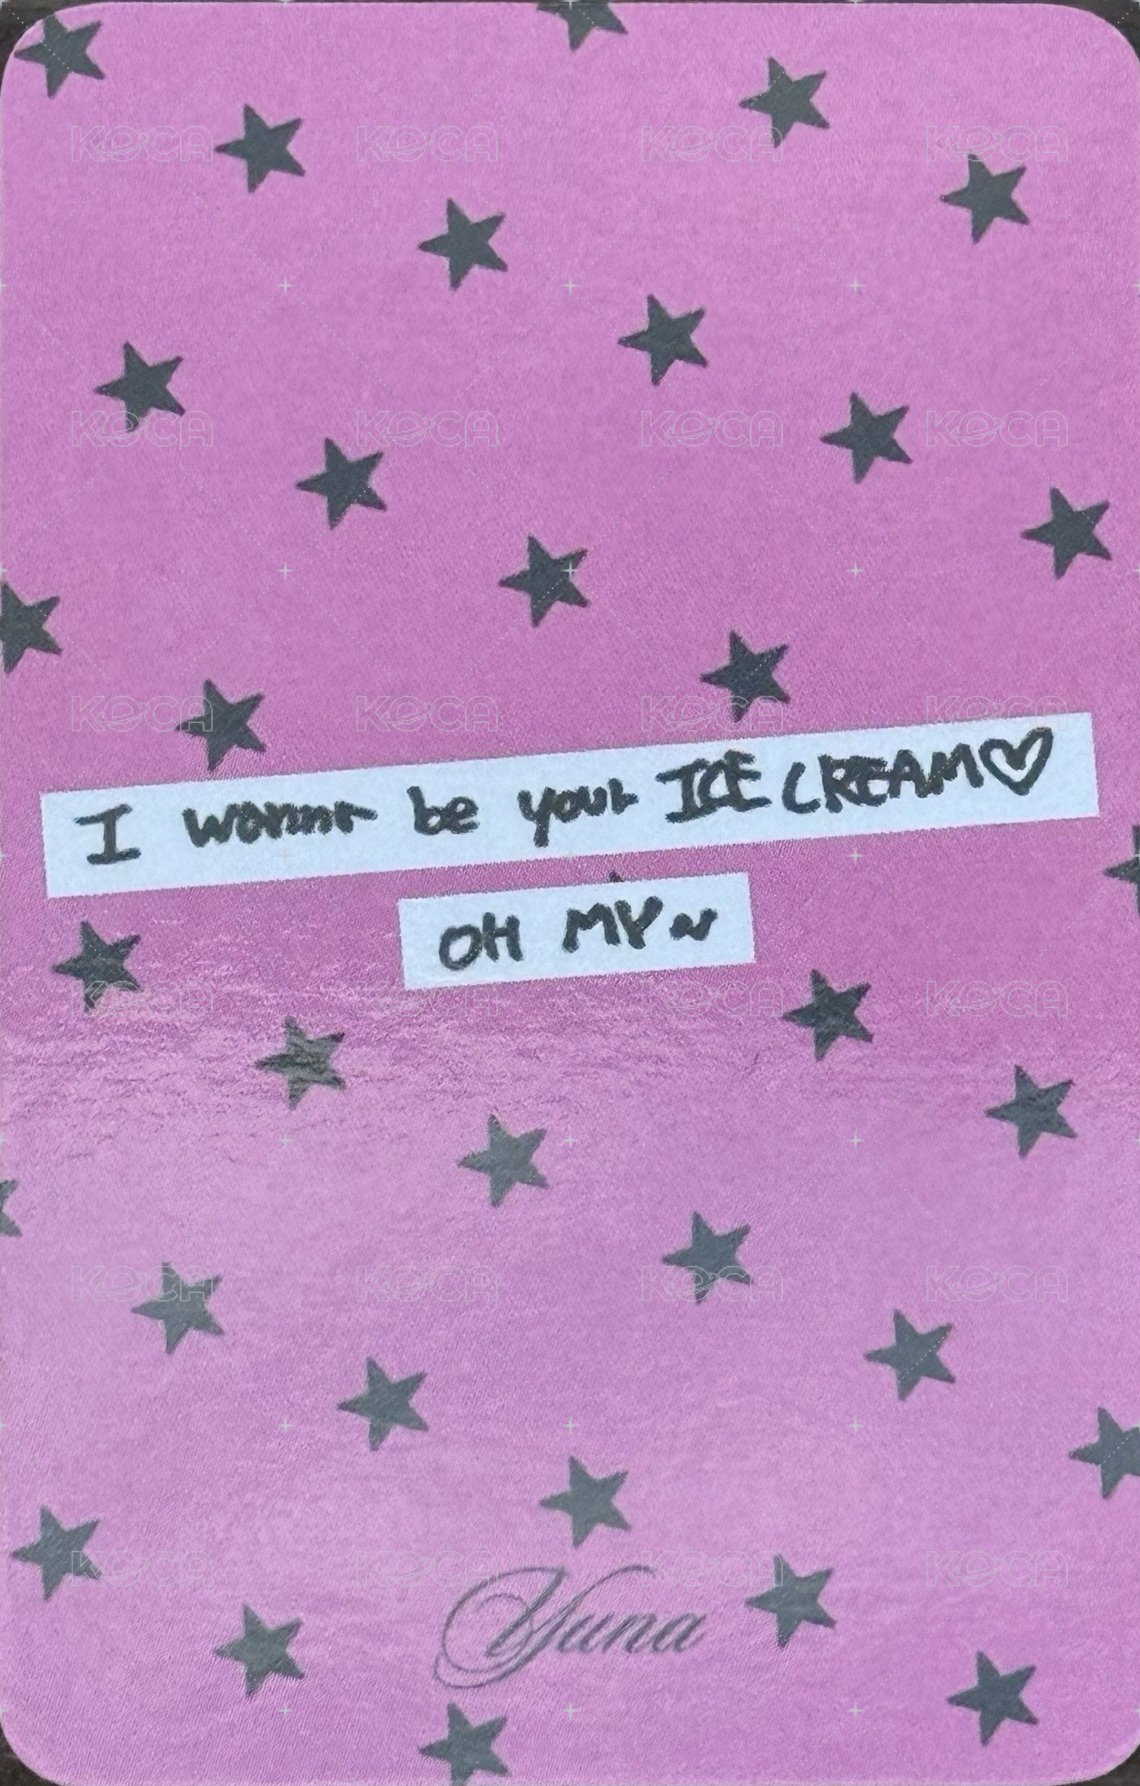 KOCA KOCA KOCA KOCA
KOCA KOCA KOCA KOCA
KOCA KOCA KOCA KOCA
I wanna be your ICE CREAM♡
OH MY~
KOCA KOCA KOCA KOCA
KOCA KOCA KOCA KOCA
KOCA KOCA KOCA KOCA
Yuna